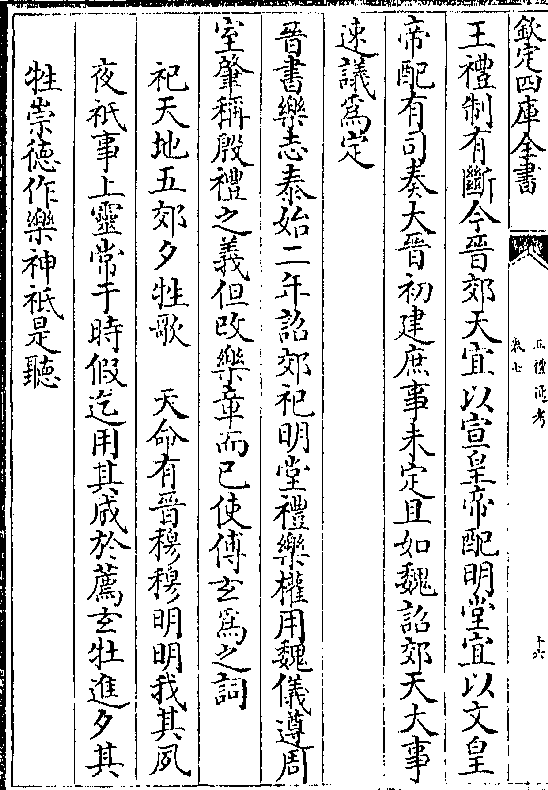 欽定四庫全書
五禮通考
卷七
十六
王禮制有斷今晉郊天宜以宣皇帝配明堂宜以文皇
帝配有司奏大晉初建庶事未定且如魏詔郊天大事
速議爲定
晉書樂志泰始二年詔郊祀明堂禮樂權用魏儀遵周
室肇稱殷禮之義但改樂章而已使傅玄爲之詞
祀天地五郊夕牲歌 天命有晉穆穆明明我其夙
夜祇事上靈常于時假迄用其成於薦玄牡進夕其
牲崇徳作樂神祇是聽